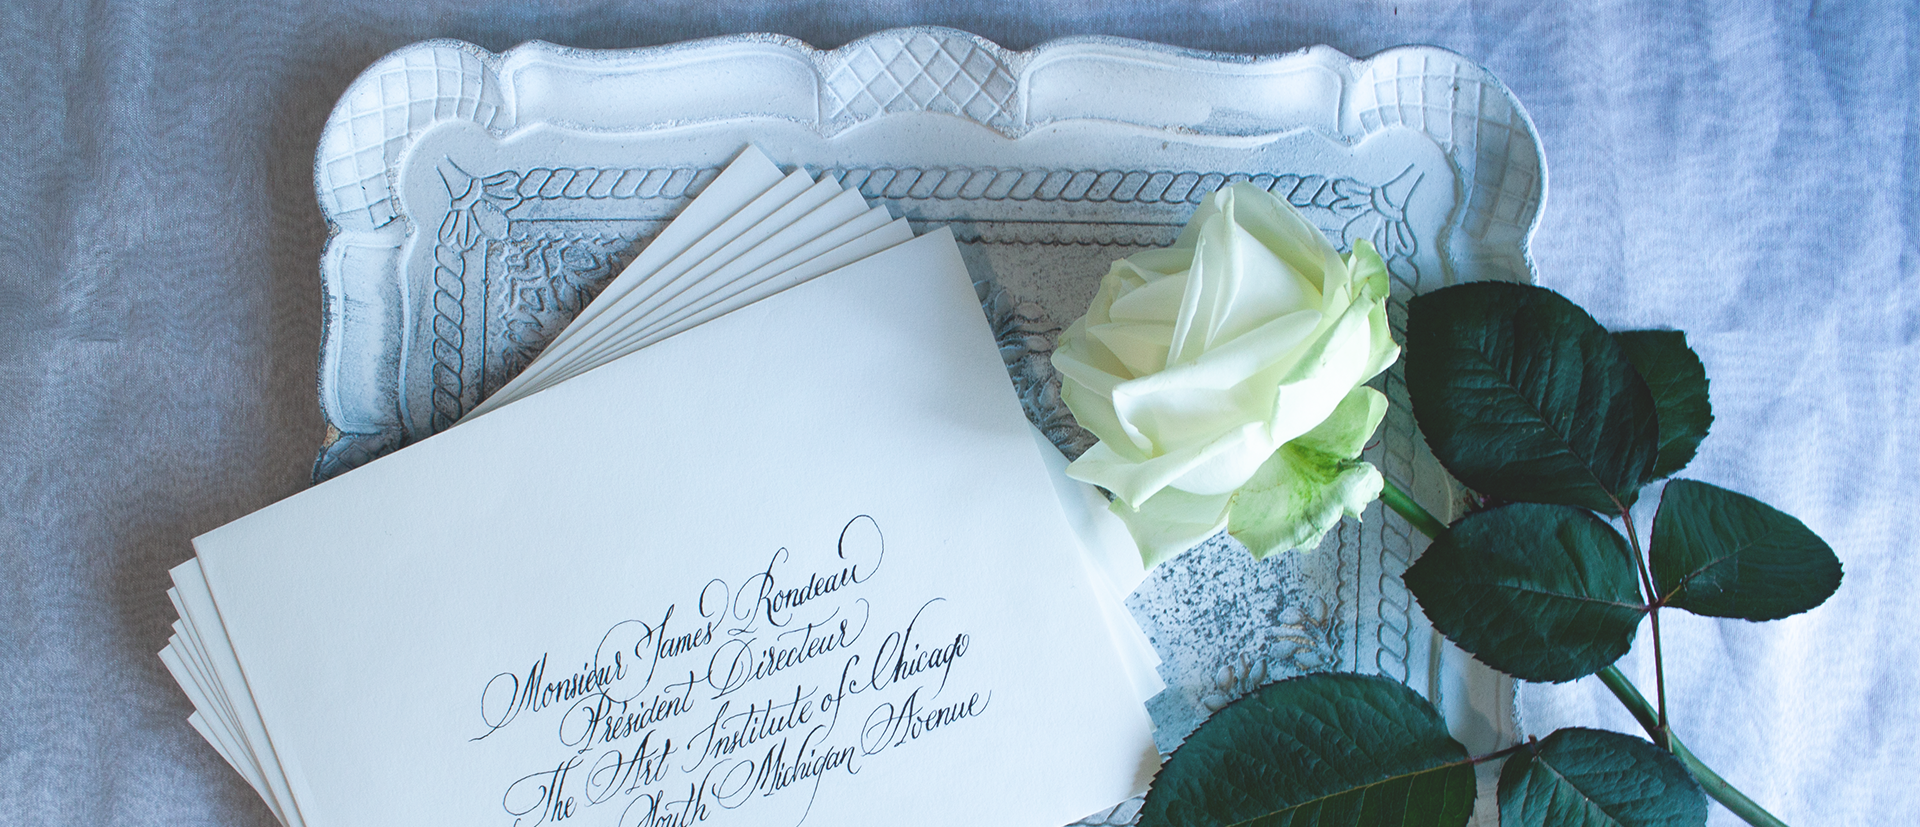 Monsieur James Rondeau
Président Directeur
The Art Institute of Chicago
South Michigan Avenue